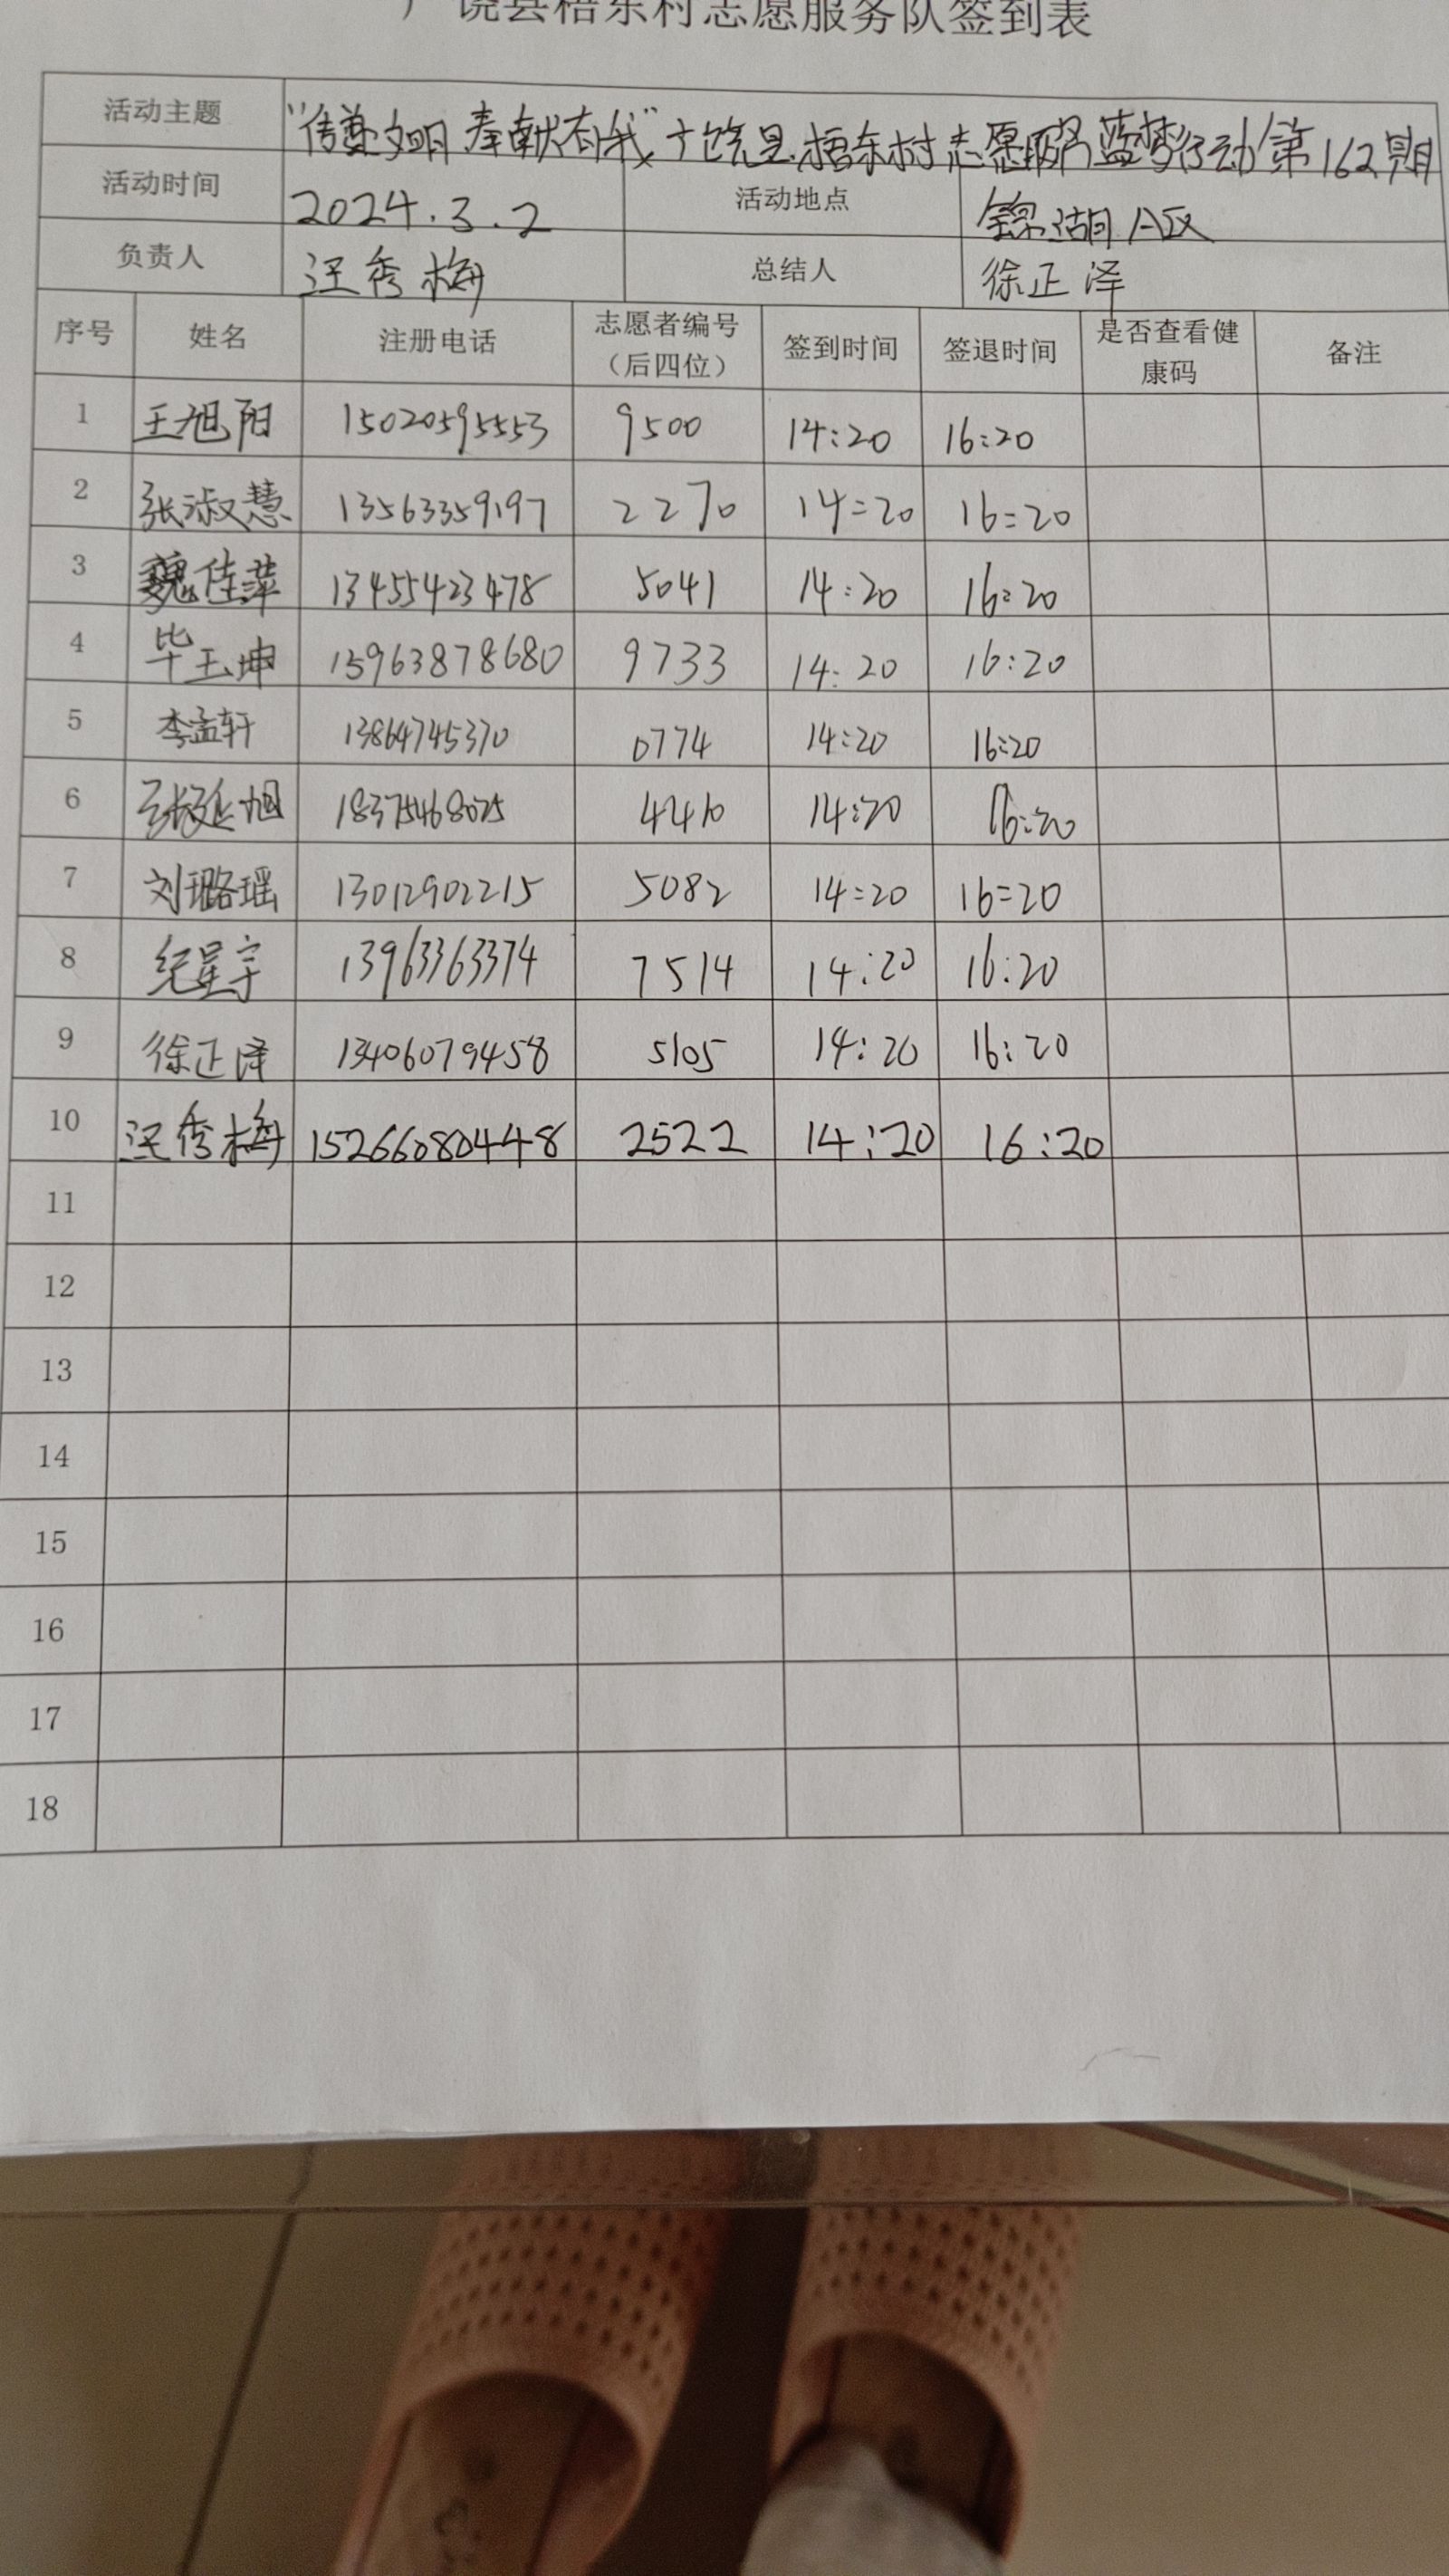 广饶县梧东村志愿服务队签到表
活动主题 "传递文明 奉献有我" 广饶县梧东村志愿服务蓝梦行动第162期
活动时间 2024.3.2 活动地点 锦湖A区
负责人 汪秀梅 总结人 徐正泽
序号 姓名 注册电话 志愿者编号（后四位） 签到时间 签退时间 是否查看健康码 备注
1 王旭阳 15020595553 9500 14:20 16:20
2 张淑慧 13563359197 2270 14:20 16:20
3 魏佳萍 13455423478 5041 14:20 16:20
4 毕玉坤 15963878680 9733 14:20 16:20
5 李孟轩 13864745370 0774 14:20 16:20
6 张延旭 18375468025 4410 14:20 16:20
7 刘璐瑶 13012902215 5082 14:20 16:20
8 纪星宇 13963363374 7514 14:20 16:20
9 徐正泽 13406079458 5105 14:20 16:20
10 汪秀梅 15266080448 2522 14:20 16:20
11
12
13
14
15
16
17
18